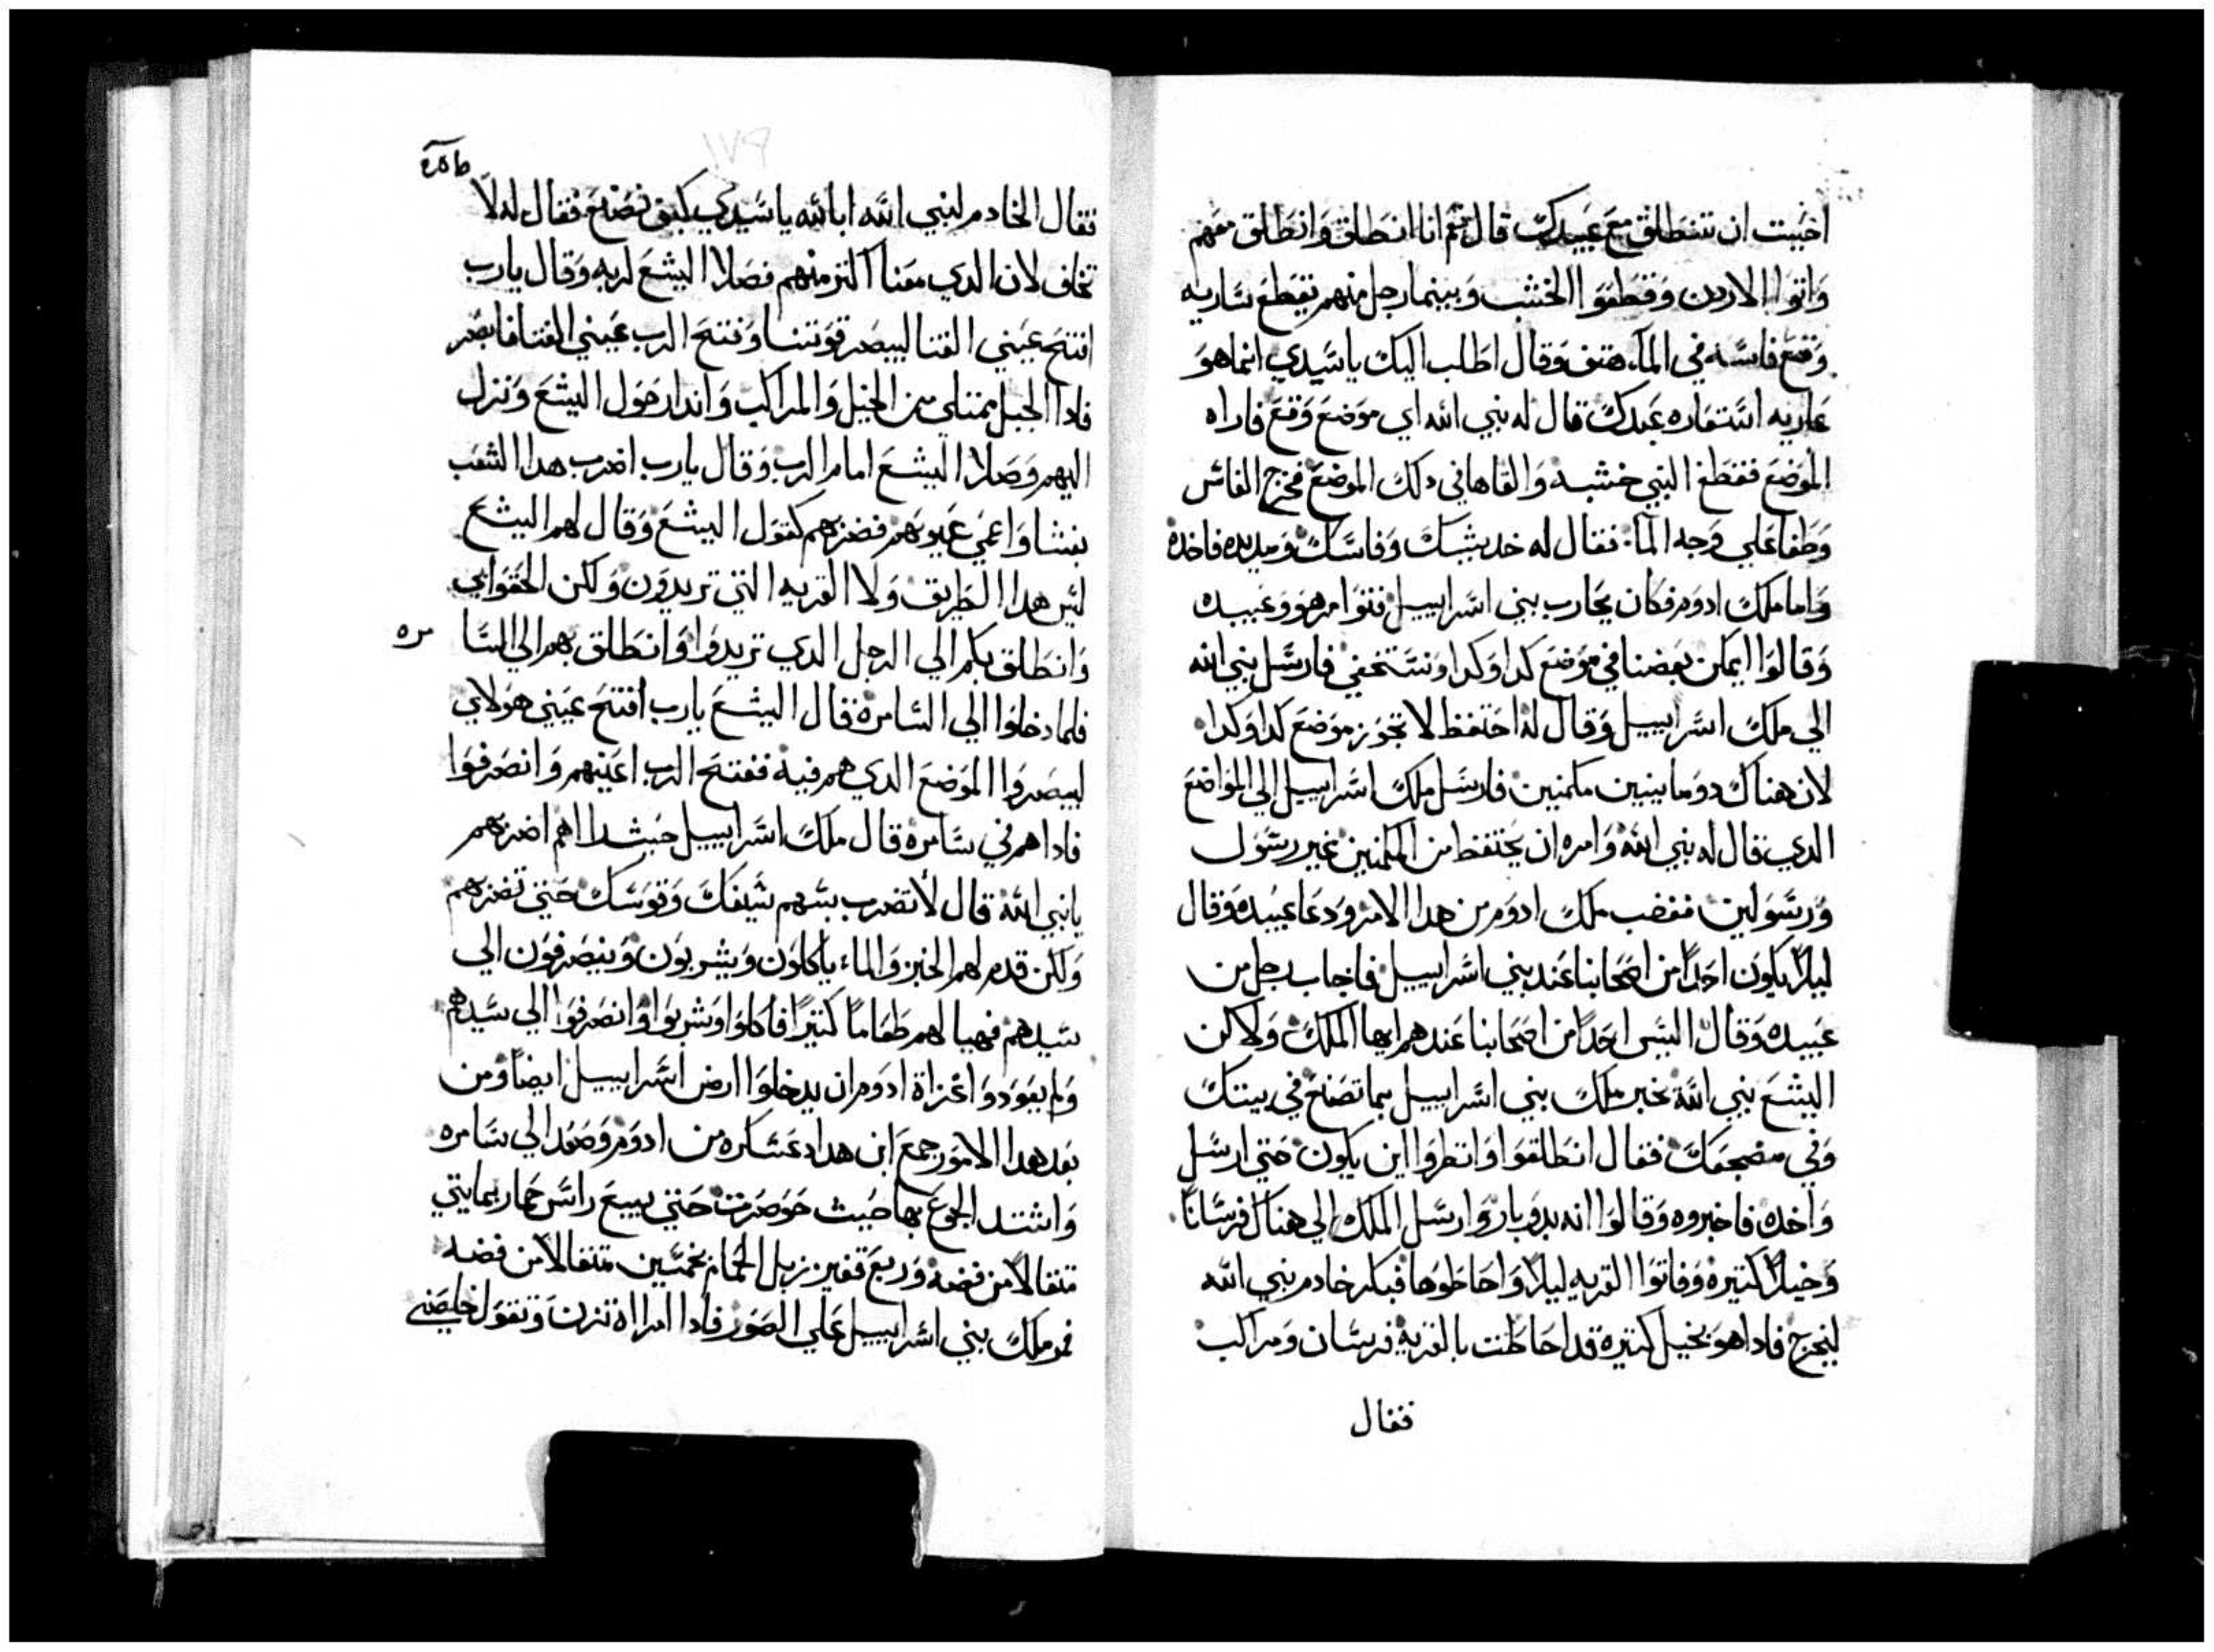 احببت ان تنطلق مع عبيدك قال نعم انا انطلق وانطلق معهم
واتوا الاردن وقطعوا الخشب وبينما رجل منهم يقطع ساريه
وقع فاسه في المآء هتف وقال اطلب اليك ياسيدي انما هو
عاريه استعاره عبدك قال له نبي الله اي موضع وقع فاراه
الموضع فقطع النبي خشبه والقاها في دلك الموضع فخرج الفاس
وطفا علي وجه المآء فقال له خد بيشك وفاسك ومد يده فاخده
واما ملك ادوم فكان يحارب بني اسراييل فتوامر هو وعبيده
وقالوا ايمكن بعضنا في موضع كدا وكدا ونستخفي فارسل نبي الله
الي ملك اسراييل وقال له احتفظ لا تجوز موضع كدا وكدا
لان هناك دومانيين مكمنين فارسل ملك اسراييل الي المواضع
الدي قال له نبي الله وامره ان يحتفظ من المكمنين غير رسول
ورسولين فغضب ملك ادوم من هدا الامر ودعا عبيده وقال
ليلا يكون احدا من اصحابنا عند بني اسراييل فاجاب رجل من
عبيده وقال اليس احدا من اصحابنا عندهم ايها الملك ولاكن
اليشع نبي الله يخبر ملك بني اسراييل بما تصنع في بيتك
وفي مضجعك فقال انطلقوا وانظروا اين يكون حتي ارسل
واخده فاخبروه وقالوا انه بدوبار وارسل الملك الي هناك فرسانا
وخيلا كتيره وفاتوا القريه ليلا واحاطوها فبكر خادم نبي الله
ليخرج فادا هو بخيل كتيره قد احاطت بالقريه فرسان ومراكب
فقال
فقال الخادم لنبي الله ابالله ياسيدي كيف نصنع فقال له لا
تخاف لان الدي معنا اكتر منهم فصلا اليشع لربه وقال يارب
افتح عيني الفتا ليبصر قوتنا وفتح الرب عيني الفتا فابصر
فادا الجبل ممتلي من الخيل والمراكب وانداد حول اليشع ونزل
اليهم وصلا اليشع امام الرب وقال يارب اضرب هدا الشعب
بغشا واعمي عيونهم فضربهم كقول اليشع وقال لهم اليشع
ليس هدا الطريق ولا القريه التي تريدون ولكن الحقوا بي
وانطلق بكم الي الرجل الدي تريدوا وانطلق بهم الي السا مره
فلما دخلوا الي السامره قال اليشع يارب افتح عيني هولاي
ليبصروا الموضع الدي هم فيه ففتح الرب اعينهم وانصرفوا
فاداهم في سامره قال ملك اسراييل حيث راهم اضربهم
يانبي الله قال لا تضرب بسهم سيفك وقوسك حتي تضربهم
ولكن قدم لهم الخبز والماء ياكلون ويشربون وينصرفون الي
سيدهم فهيا لهم طعاما كتيرا فاكلوا وشربوا وانصرفوا الي سيدهم
ولم يعودوا غزاة ادوم ان يدخلوا ارض اسراييل ايضا ومن
بعد هدا الامور جمع ابن هداد عساكره من ادوم وصعد الي سامره
واشتد الجوع بها حيث حوصرت حتي بيع راس حمار بمايتي
متقالا من فضه وربع قفيز زبل الحمام بخمسين متقالا من فضه
فمر ملك بني اسراييل علي الصور فادا امراه تزن وتقول خلصني